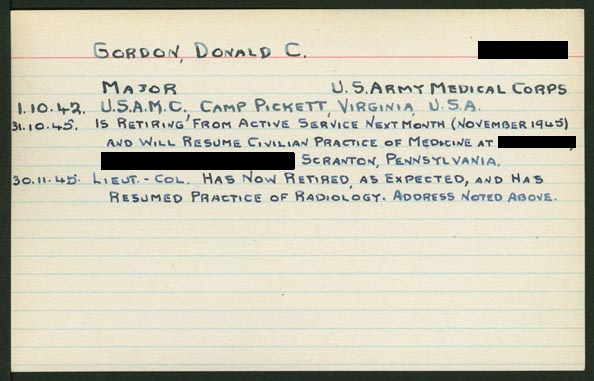 GORDON, DONALD C.
MAJOR U.S. ARMY MEDICAL CORPS
1.10.42. U.S.A.M.C. CAMP PICKETT, VIRGINIA, U.S.A.
31.10.45. IS RETIRING FROM ACTIVE SERVICE NEXT MONTH (NOVEMBER 1945)
AND WILL RESUME CIVILIAN PRACTICE OF MEDICINE AT
SCRANTON, PENNSYLVANIA.
30.11.45. LIEUT.-COL. HAS NOW RETIRED, AS EXPECTED, AND HAS
RESUMED PRACTICE OF RADIOLOGY. ADDRESS NOTED ABOVE.